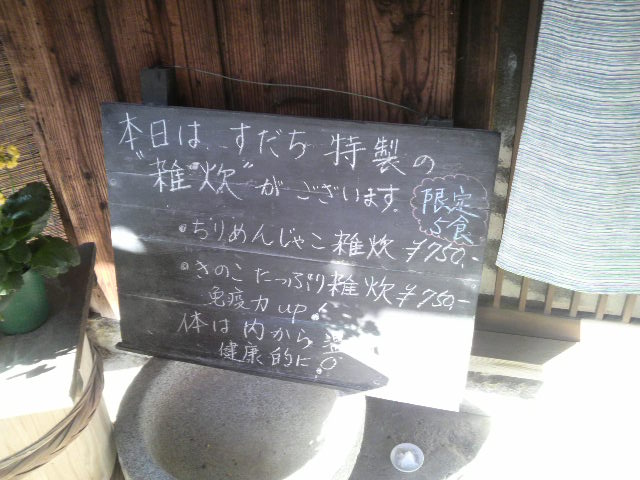 本日は すだち 特製の
"雑炊"がございます。
限定
5食
・ちりめんじゃこ雑炊 ¥750,-
・きのこたっぷり雑炊 ¥750-
免疫力up!
体は内から
健康的に。